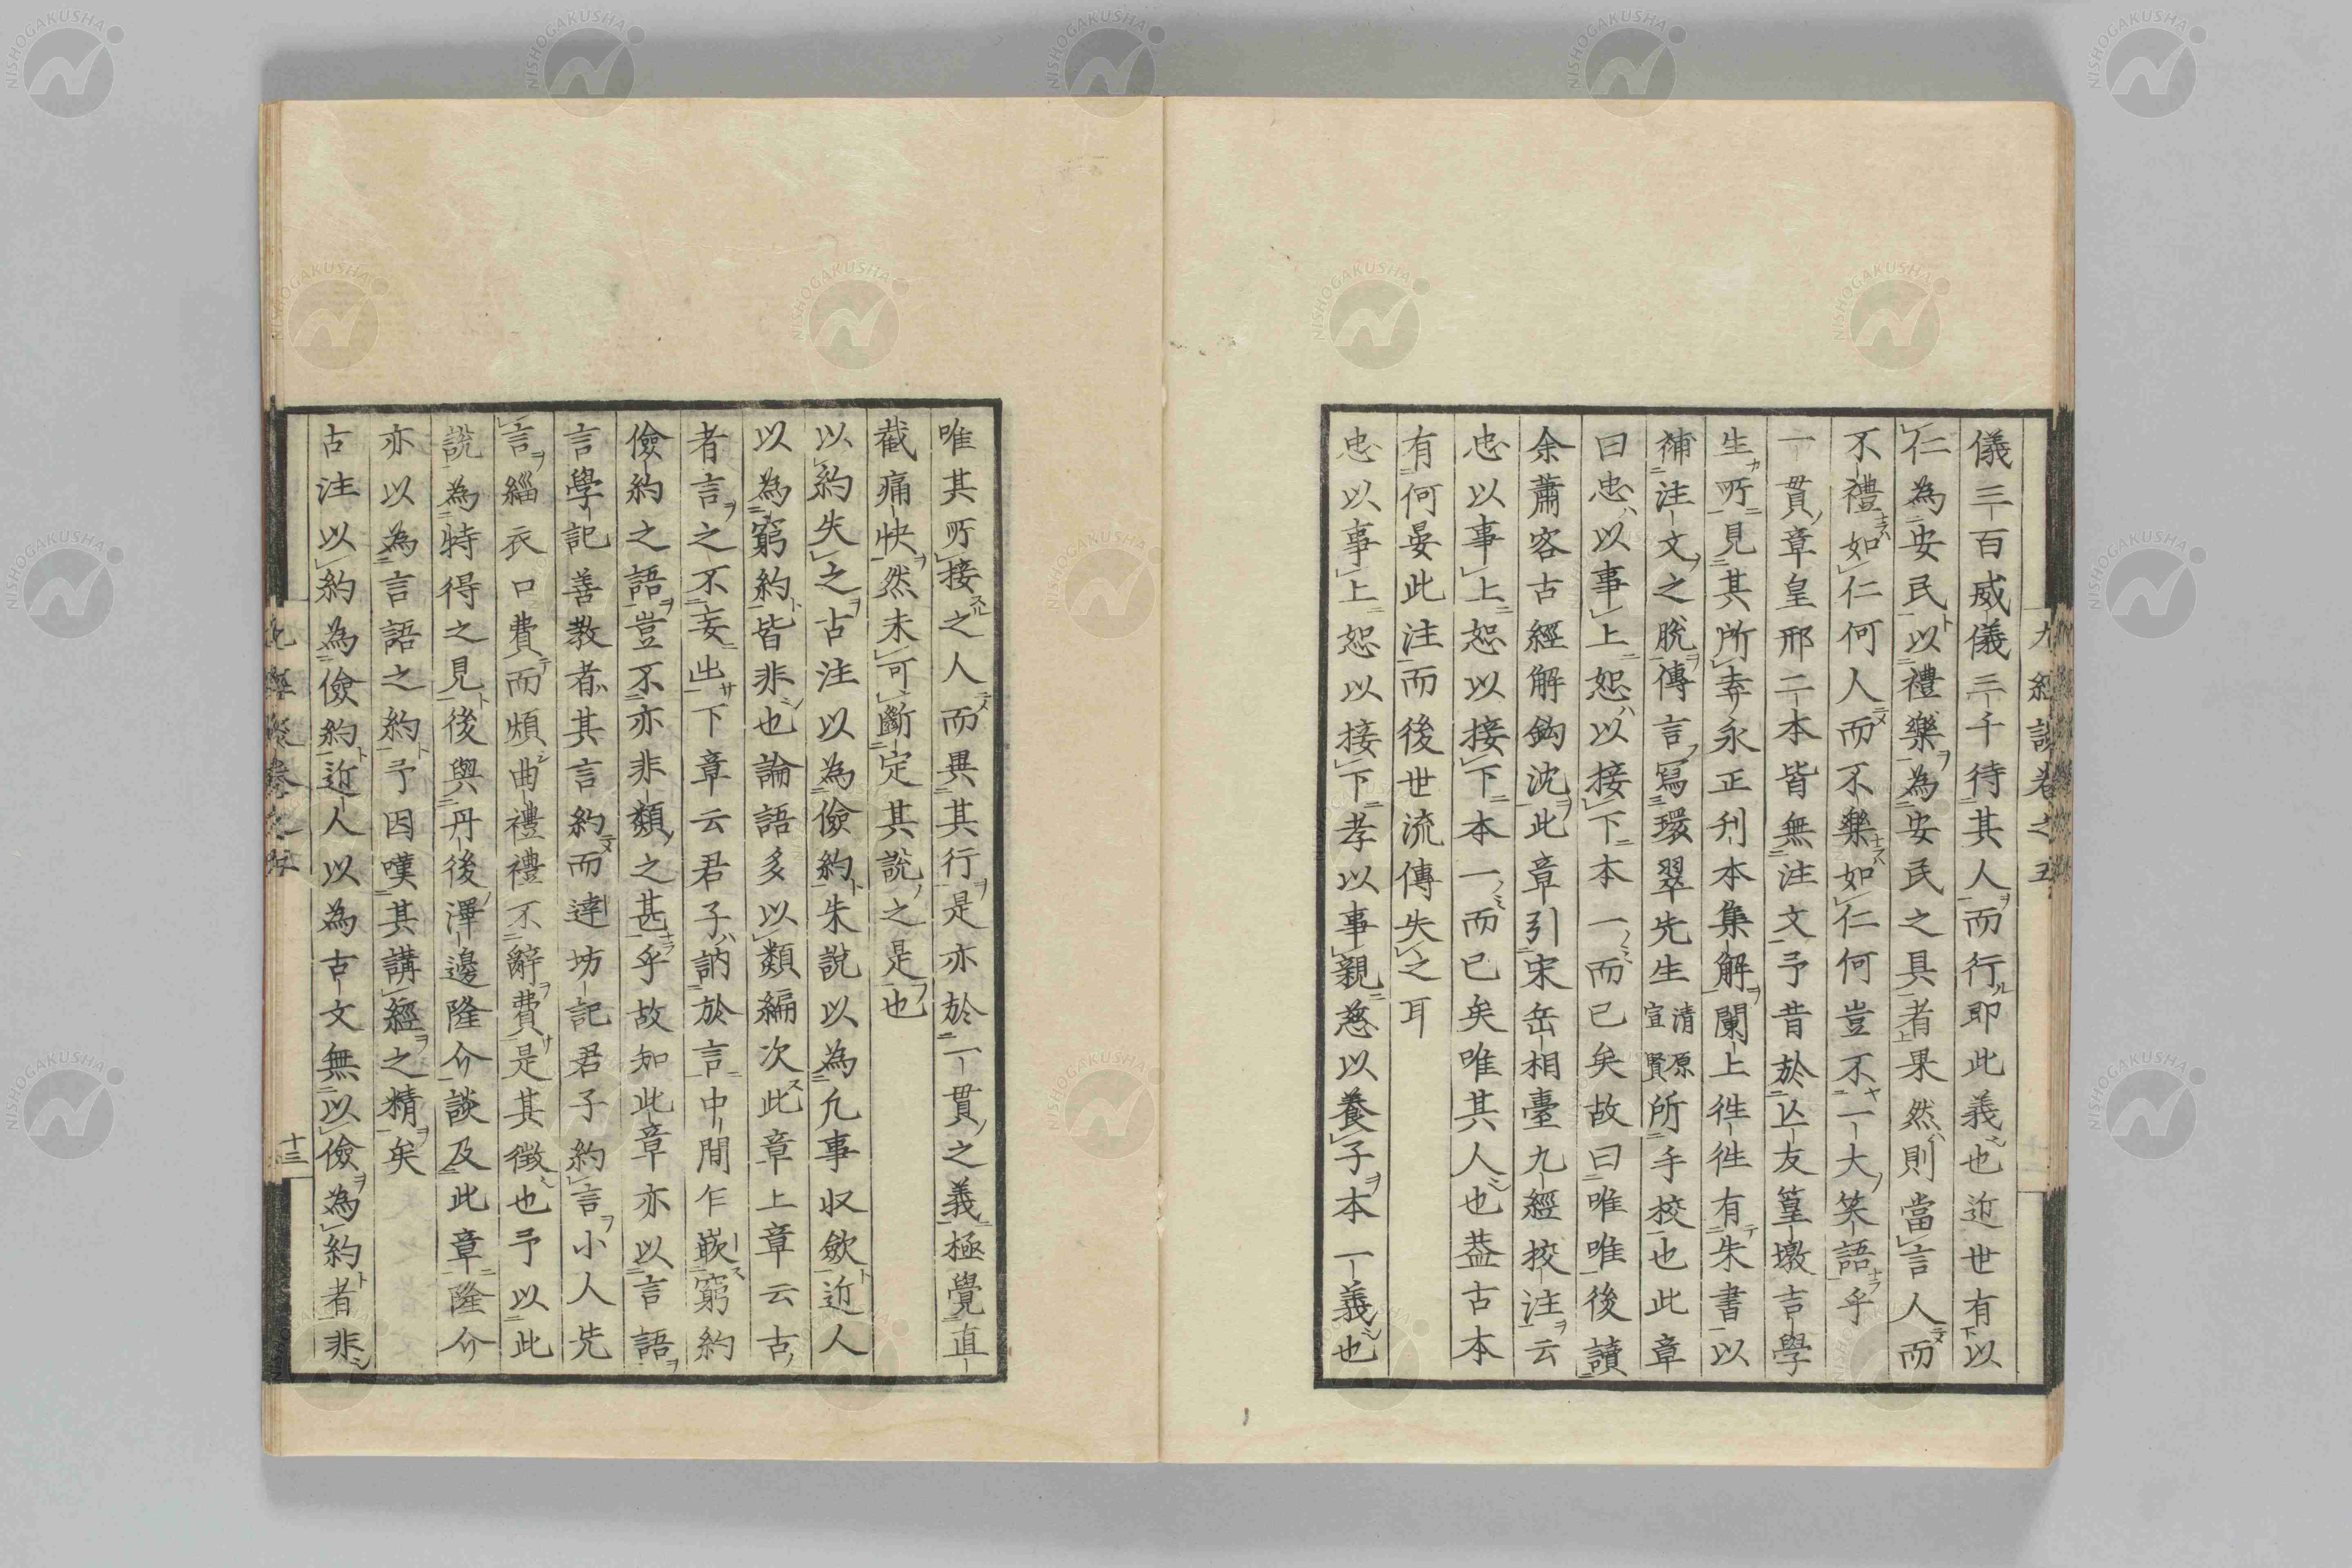 儀三百威儀三千待其人而行即此義也近世有以
仁為安民以禮樂為安民之具者果然則當言人而
不禮如仁何人而不樂如仁何豈不一大笑語乎
一貫章皇邢二本皆無注文予昔於亡友篁墩吉學
生所見其所弆永正刋本集解闌上徃徃有朱書以
補注文之脫傳言寫環翠先生清原宣賢所手校也此章
曰忠以事上恕以接下本一而已矣故曰唯唯後讀
余蕭客古經解鈎沈此章引宋岳相臺九經挍注云
忠以事上恕以接下本一而已矣唯其人也葢古本
有何晏此注而後世流傳失之耳
忠以事上恕以接下孝以事親慈以養子本一義也
唯其所接之人而異其行是亦於一貫之義極覺直
截痛快然未可斷定其說之是也
以約失之古注以為儉約朱說以為凢事収斂近人
以為窮約皆非也論語多以類編次此章上章云古
者言之不妄出下章云君子訥於言中間乍嵌窮約
儉約之語豈不亦非類之甚乎故知此章亦以言語
言學記善教者其言約而達坊記君子約言小人先
言緇衣口費而煩曲禮禮不辭費是其徵也予以此
說為特得之見後與丹後澤邊隆介談及此章隆介
亦以為言語之約予因嘆其講經之精矣
古注以約為儉約近人以為古文無以儉為約者非
九經談卷之五
十三
NISHOGAKUSHA